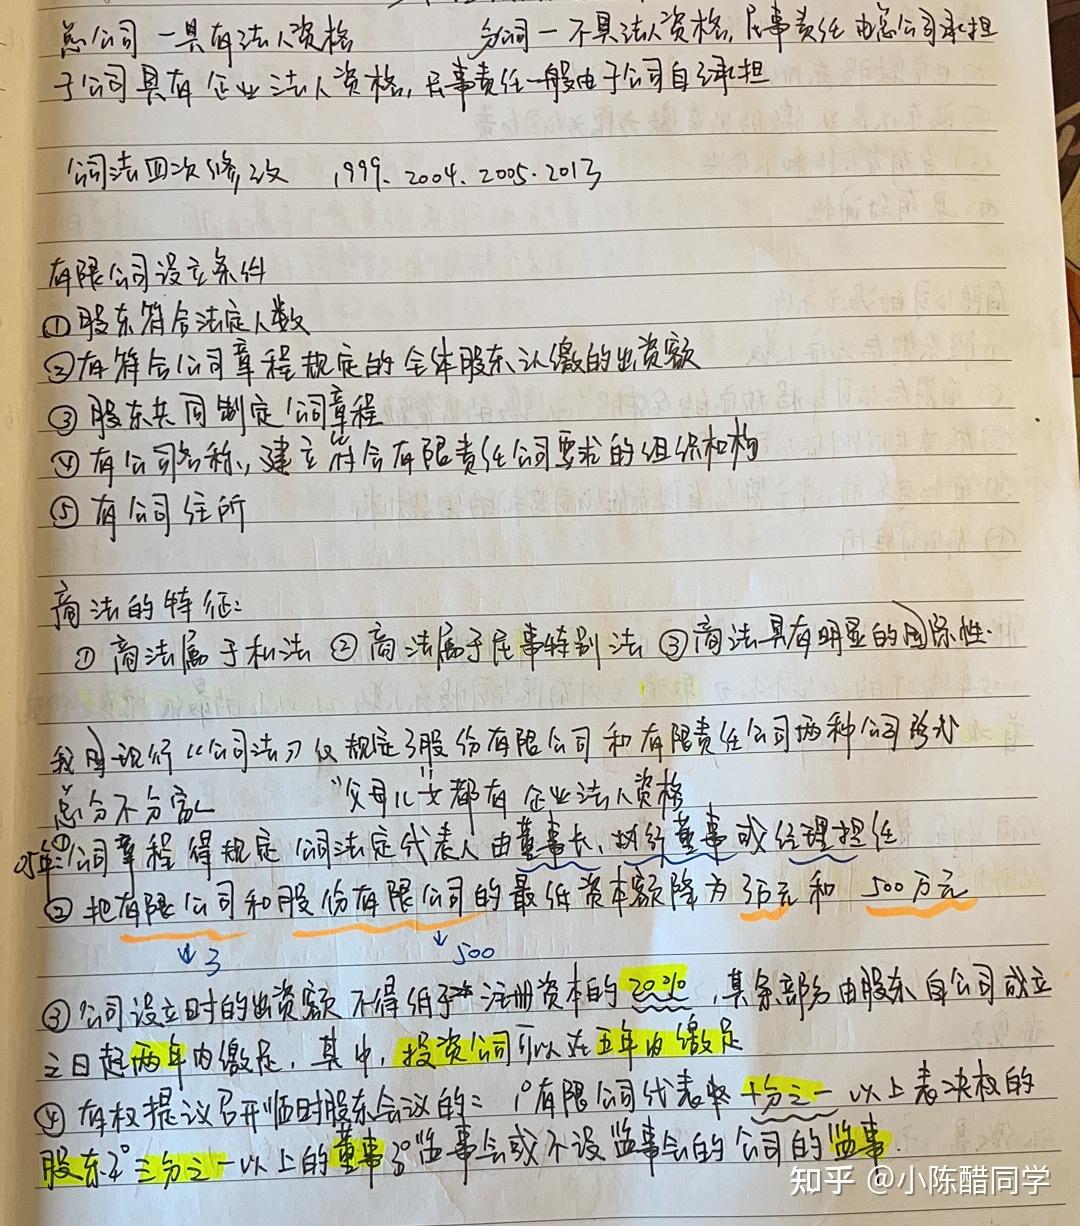 总公司—具有法人资格 分公司—不具法人资格,民事责任由总公司承担
子公司具有企业法人资格,民事责任一般由子公司自己承担
公司法四次修改 1999.2004.2005.2013
有限公司设立条件
①股东符合法定人数
②有符合公司章程规定的全体股东认缴的出资额
③股东共同制定公司章程
④有公司名称,建立符合有限责任公司要求的组织机构
⑤有公司住所
商法的特征:
①商法属于私法 ②商法属于民事特别法 ③商法具有明显的国际性.
我国现行《公司法》仅规定了股份有限公司和有限责任公司两种公司形式
总分不分家 "父母儿女"都有企业法人资格
05年:①公司章程得规定公司法定代表人由董事长、执行董事或经理担任
②把有限公司和股份有限公司的最低资本额降为3万元和500万元
↓3 ↓500
③公司设立时的出资额不得低于注册资本的20%,其余部分由股东自公司成立
之日起两年内缴足,其中,投资公司可以在五年内缴足
④有权提议召开临时股东会议的:1°有限公司代表十分之一以上表决权的
股东2°三分之一以上的董事3°监事会或不设监事会的公司的监事.
知乎 @小陈醋同学